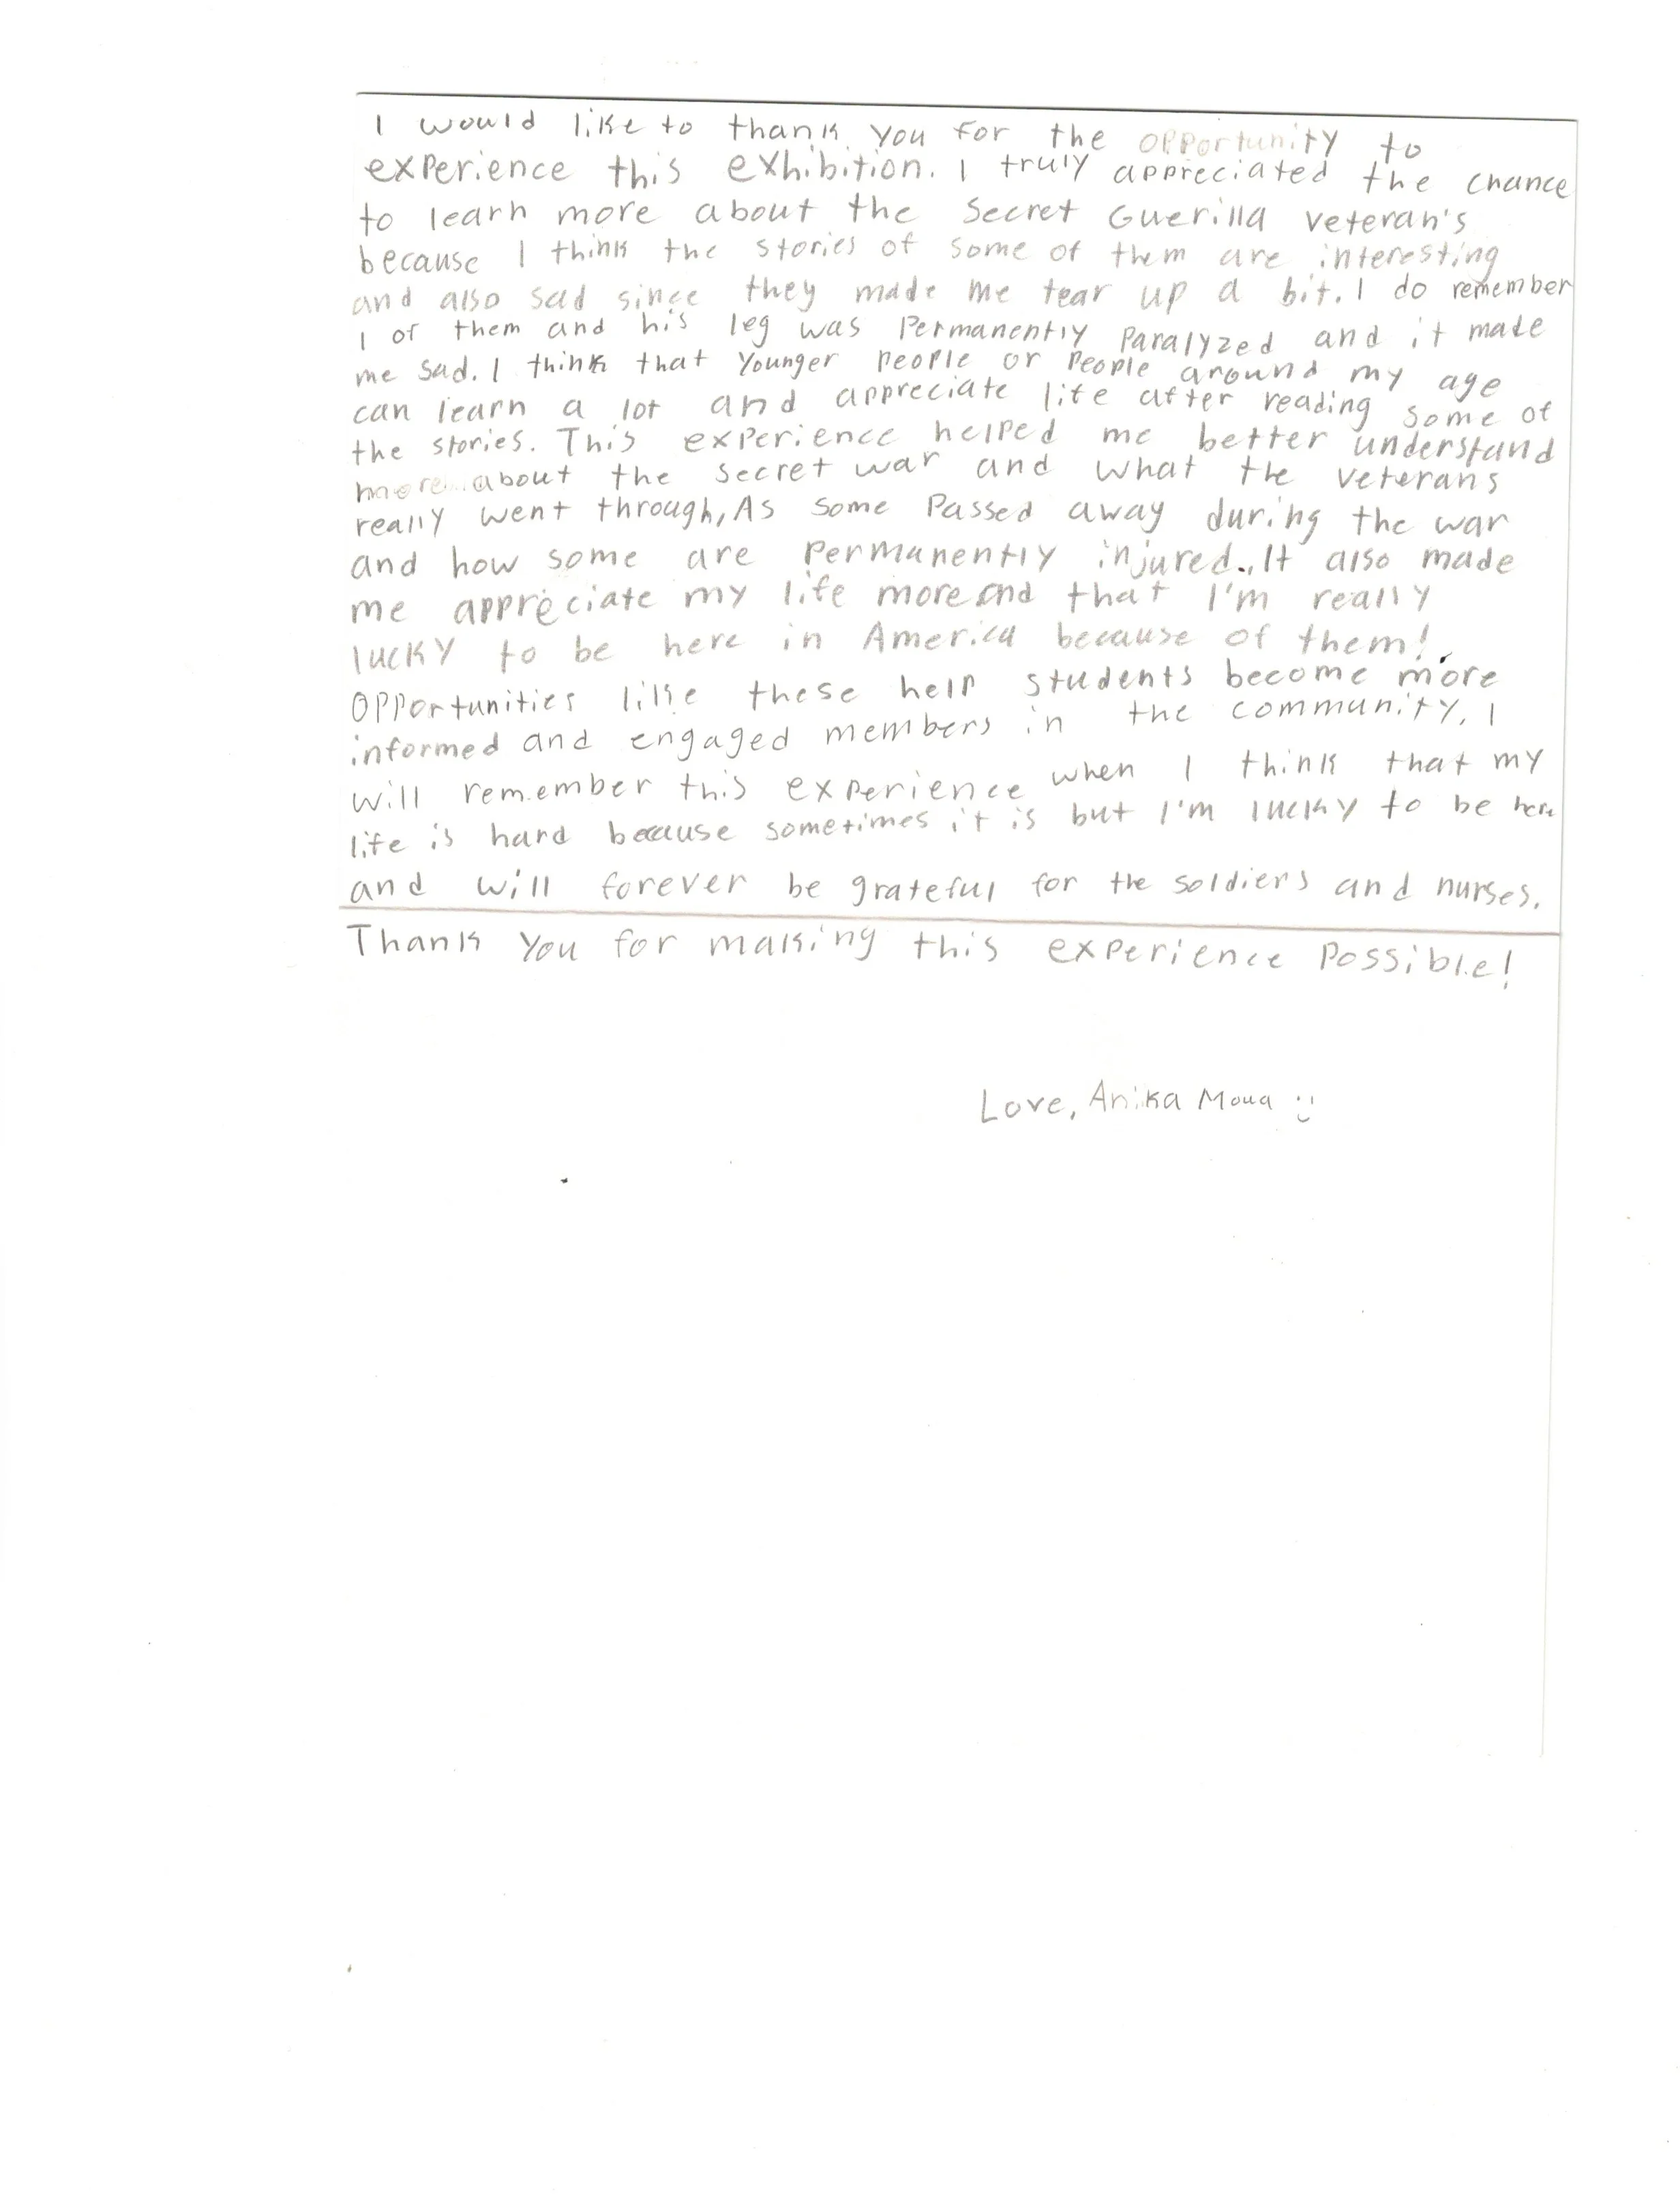 I would like to thank you for the opportunity to
experience this exhibition. I truly appreciated the chance
to learn more about the Secret Guerilla veteran's
because I think the stories of some of them are interesting
and also sad since they made me tear up a bit. I do remember
1 of them and his leg was permanently paralyzed and it made
me sad. I think that younger people or people around my age
can learn a lot and appreciate life after reading some of
the stories. This experience helped me better understand
more about the secret war and what the veterans
really went through, As some passed away during the war
and how some are permanently injured. It also made
me appreciate my life more and that I'm really
lucky to be here in America because of them!
Opportunities like these help students become more
informed and engaged members in the community. I
will remember this experience when I think that my
life is hard because sometimes it is but I'm lucky to be here
and will forever be grateful for the soldiers and nurses.
Thank you for making this experience possible!
Love, Anika Moua :)